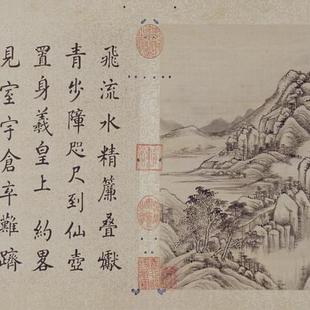 飛流水精簾叠巘
青步障咫尺到仙壺
置身羲皇上 約畧
見室宇倉卒難躋